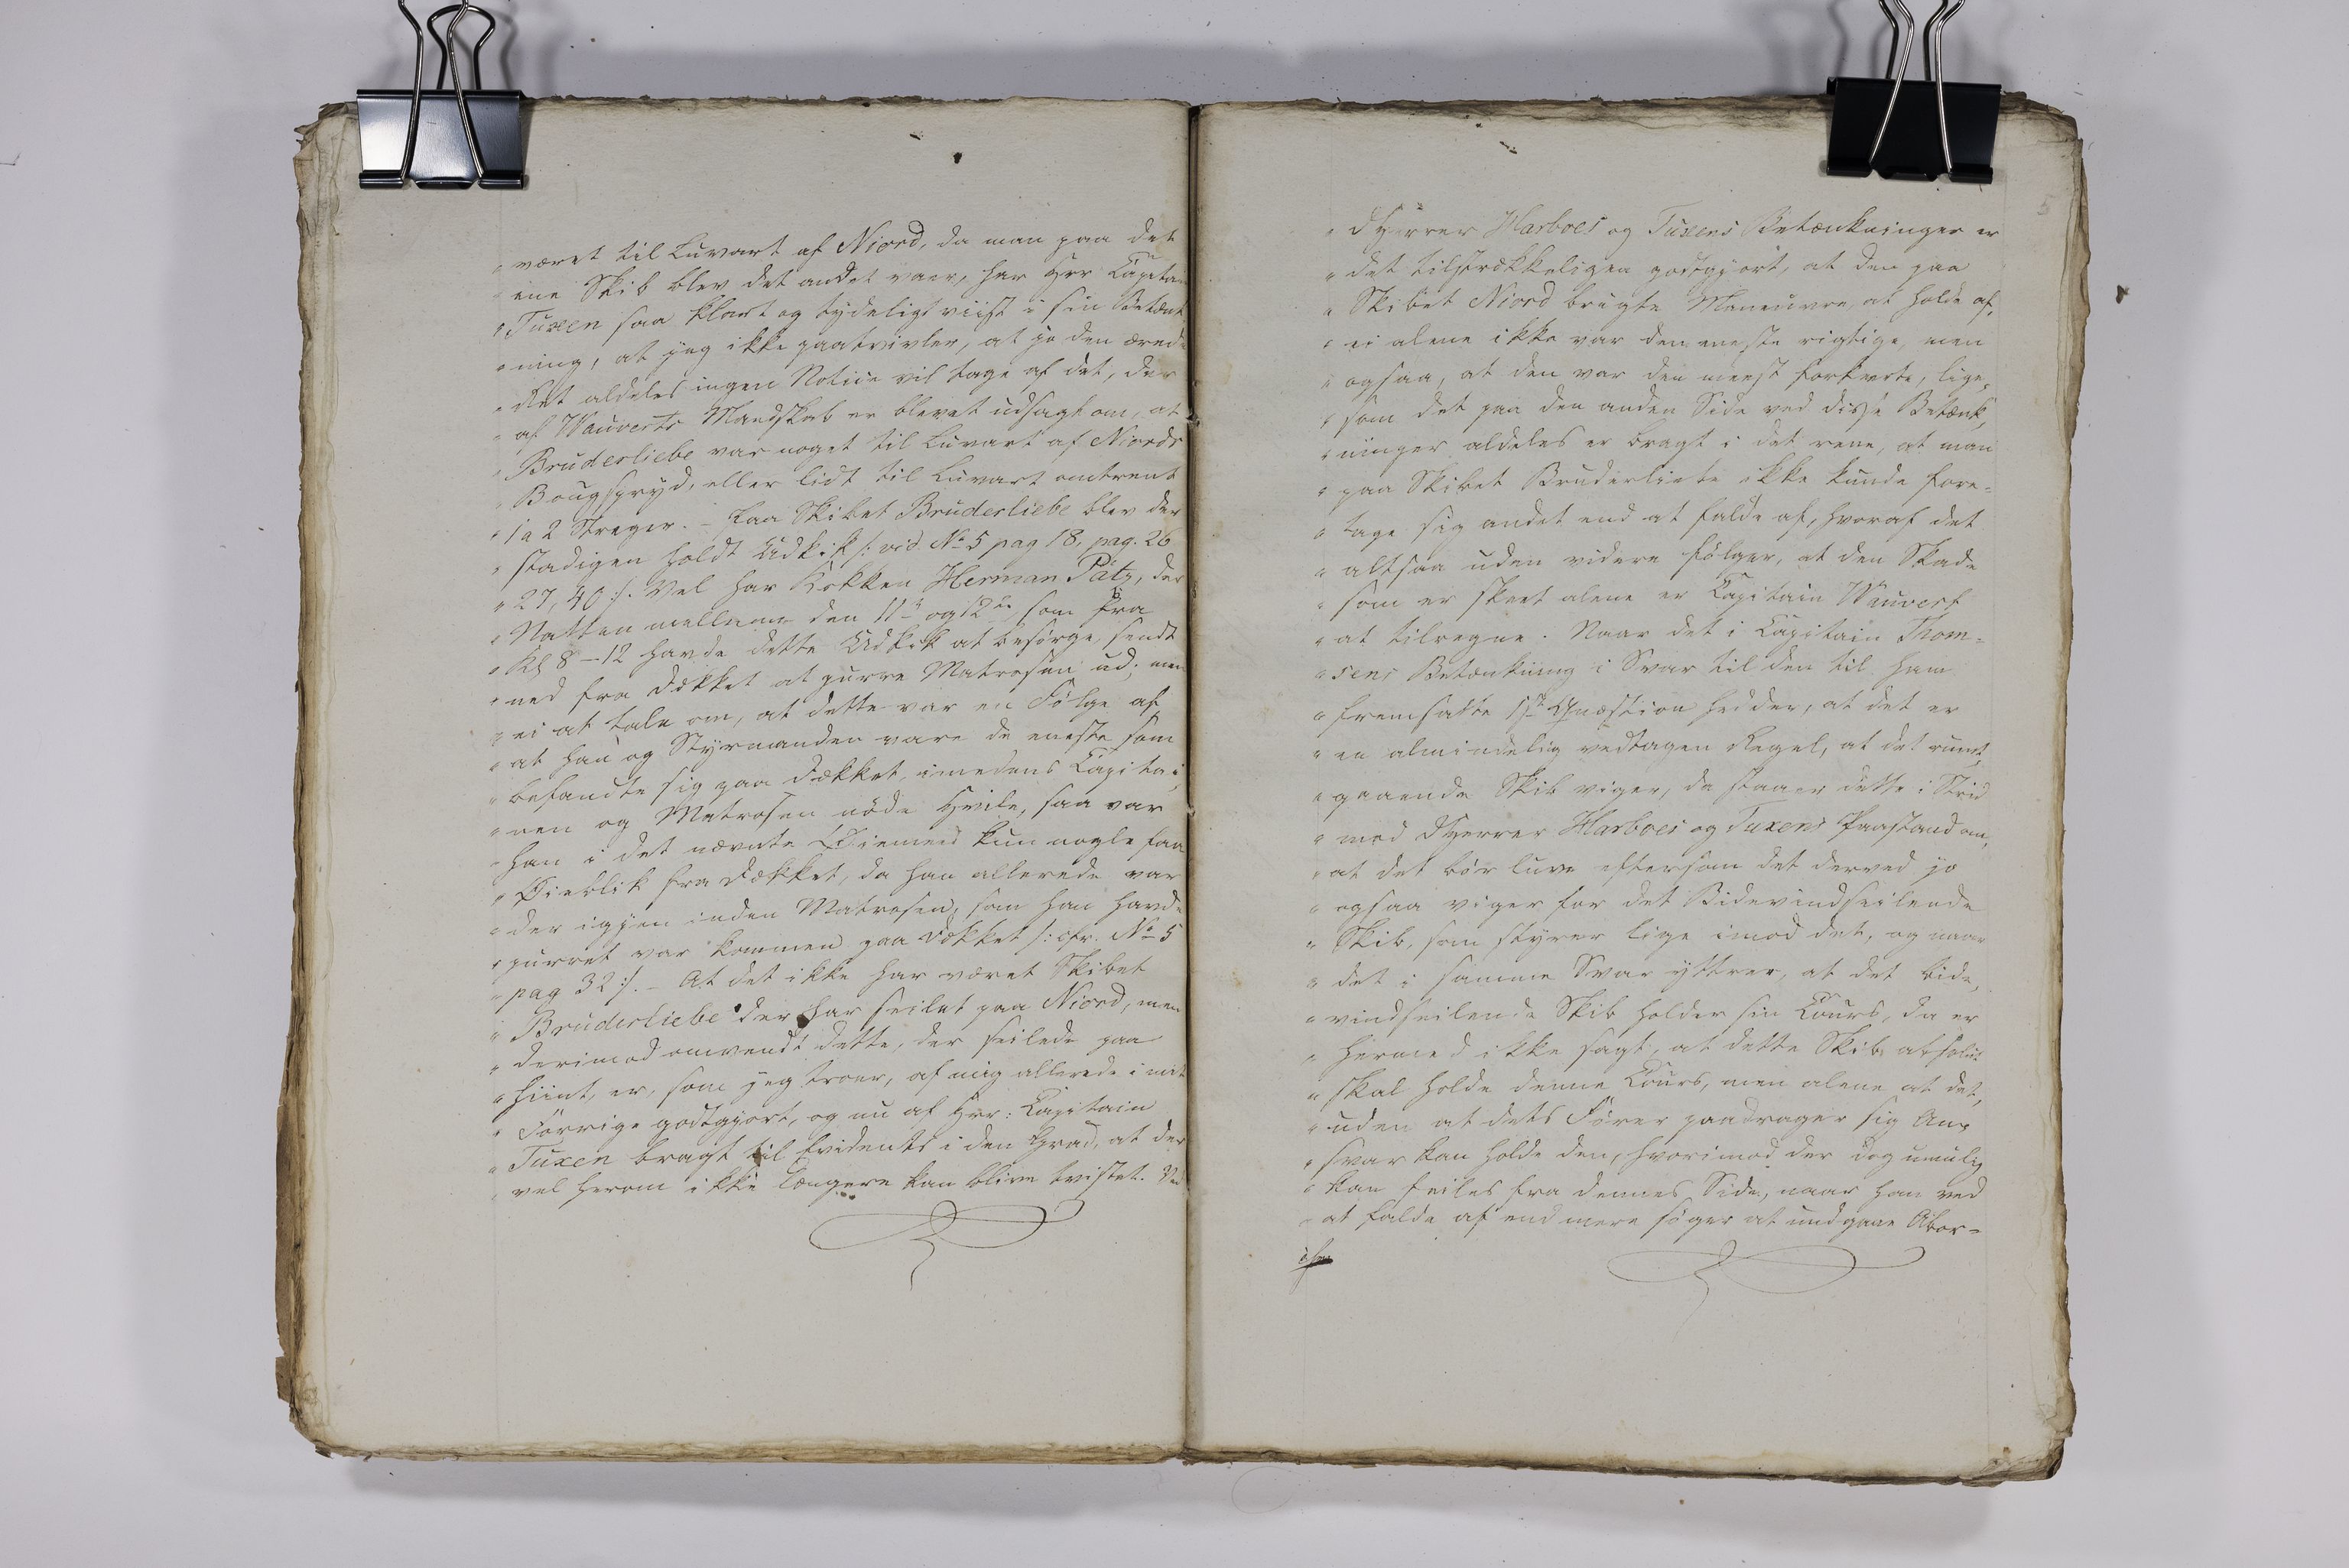 " været til Luvart af Niord, da man paa det
" ene Skib blev det andet vaer, har Hrr Capitai
" Tuxen saa klart og tydeligt viist i sin Betænk
" ning, at jeg ikke paatvivler, at jo den ærede
" Ret aldeles ingen Notice vil tage af det, der
" af Wauverts Mandskab er blevet udsagt om, at
" Bruderliebe var noget til Luvart af Niords
" Bougspryd, eller lidt til Luvart omtrent
" 1 a 2 Streger. – Paa Skibet Bruderliebe blev der
" stadigen holdt Udkik /: vid. No 5 pag 18, pag. 26
" 27, 40 :/. Vel har Kokken Herman Pätz, der
" Natten mellem den 11te og 12te, som fra
" Kl 8–12 havde dette Udkik at besørge, sendt
" ned fra Dækket at purre Matrosen ud; men
" ei at tale om, at dette var en Følge af,
" at han og Styrmanden vare de eneste som
" befandte sig paa Dækket, imedens Capitai,
" nen og Matrosen nøde Hvile, saa var
" han i det nævnte Øiemed kun nogle faa
" Øieblik fra Dækket, da han allerede var
" der igjen inden Matrosen, som han havde
" purret var kommen paa Dækket /: cfr. No 5
" pag 32 :/. – At det ikke har været Skibet
" Bruderliebe der har seilet paa Niord, men
" derimod omvendt dette, der seilede paa
" hiint, er, som jeg troer, af mig allerede i mit
" Forrige godtgjort, og nu af Hrr: Capitain
" Tuxen bragt til Evidents i den Grad, at der
" vel herom ikke længere kan blive tvistet. Ved
5
" DHerrer Harboes og Tuxens Betænkninger er
" det tilstrækkeligen godtgjort, at den paa
" Skibet Niord brugte Maneuvre, at holde af,
" ei alene ikke var den meste rigtige, men
" ogsaa, at den var den meest forkerte, lige,
" som det paa den anden Side ved disse Betænk,
" ninger aldeles er bragt i det rene, at man
" paa Skibet Bruderliebe ikke kunde fore=
" tage sig andet end at falde af, hvoraf det
" altsaa uden videre følger, at den Skade
" som er skeet alene er Capitain Wauvert
" at tilregne. Naar det i Capitain Thom=
" sens Betænkning i Svar til den til ham
" fremsatte 1ste Quæstion hedder, at det er
" en almindelig vedtagen Regel, at det rumt,
" gaaende Skib viger, da staaer dette i Strid
" mod DHerrer Harboes og Tuxens Paastand om,
" at det bør luve eftersom det derved jo
" ogsaa viger for det Bidevindseilende
" Skib, som styrer lige imod det, og naar
" det i samme Svar yttrer, at det bide,
" vindseilende Skib holder sin Cours, da er
" hermed ikke sagt, at dette Skib absolut
" skal holde denne Cours, men alene at det,
" uden at dets Fører paadrager sig An,
" svar kan holde den, hvorimod der dog umulig
" kan feiles fra dennes Side, naar han ved
" at falde af end mere søger at undgaae Abor=